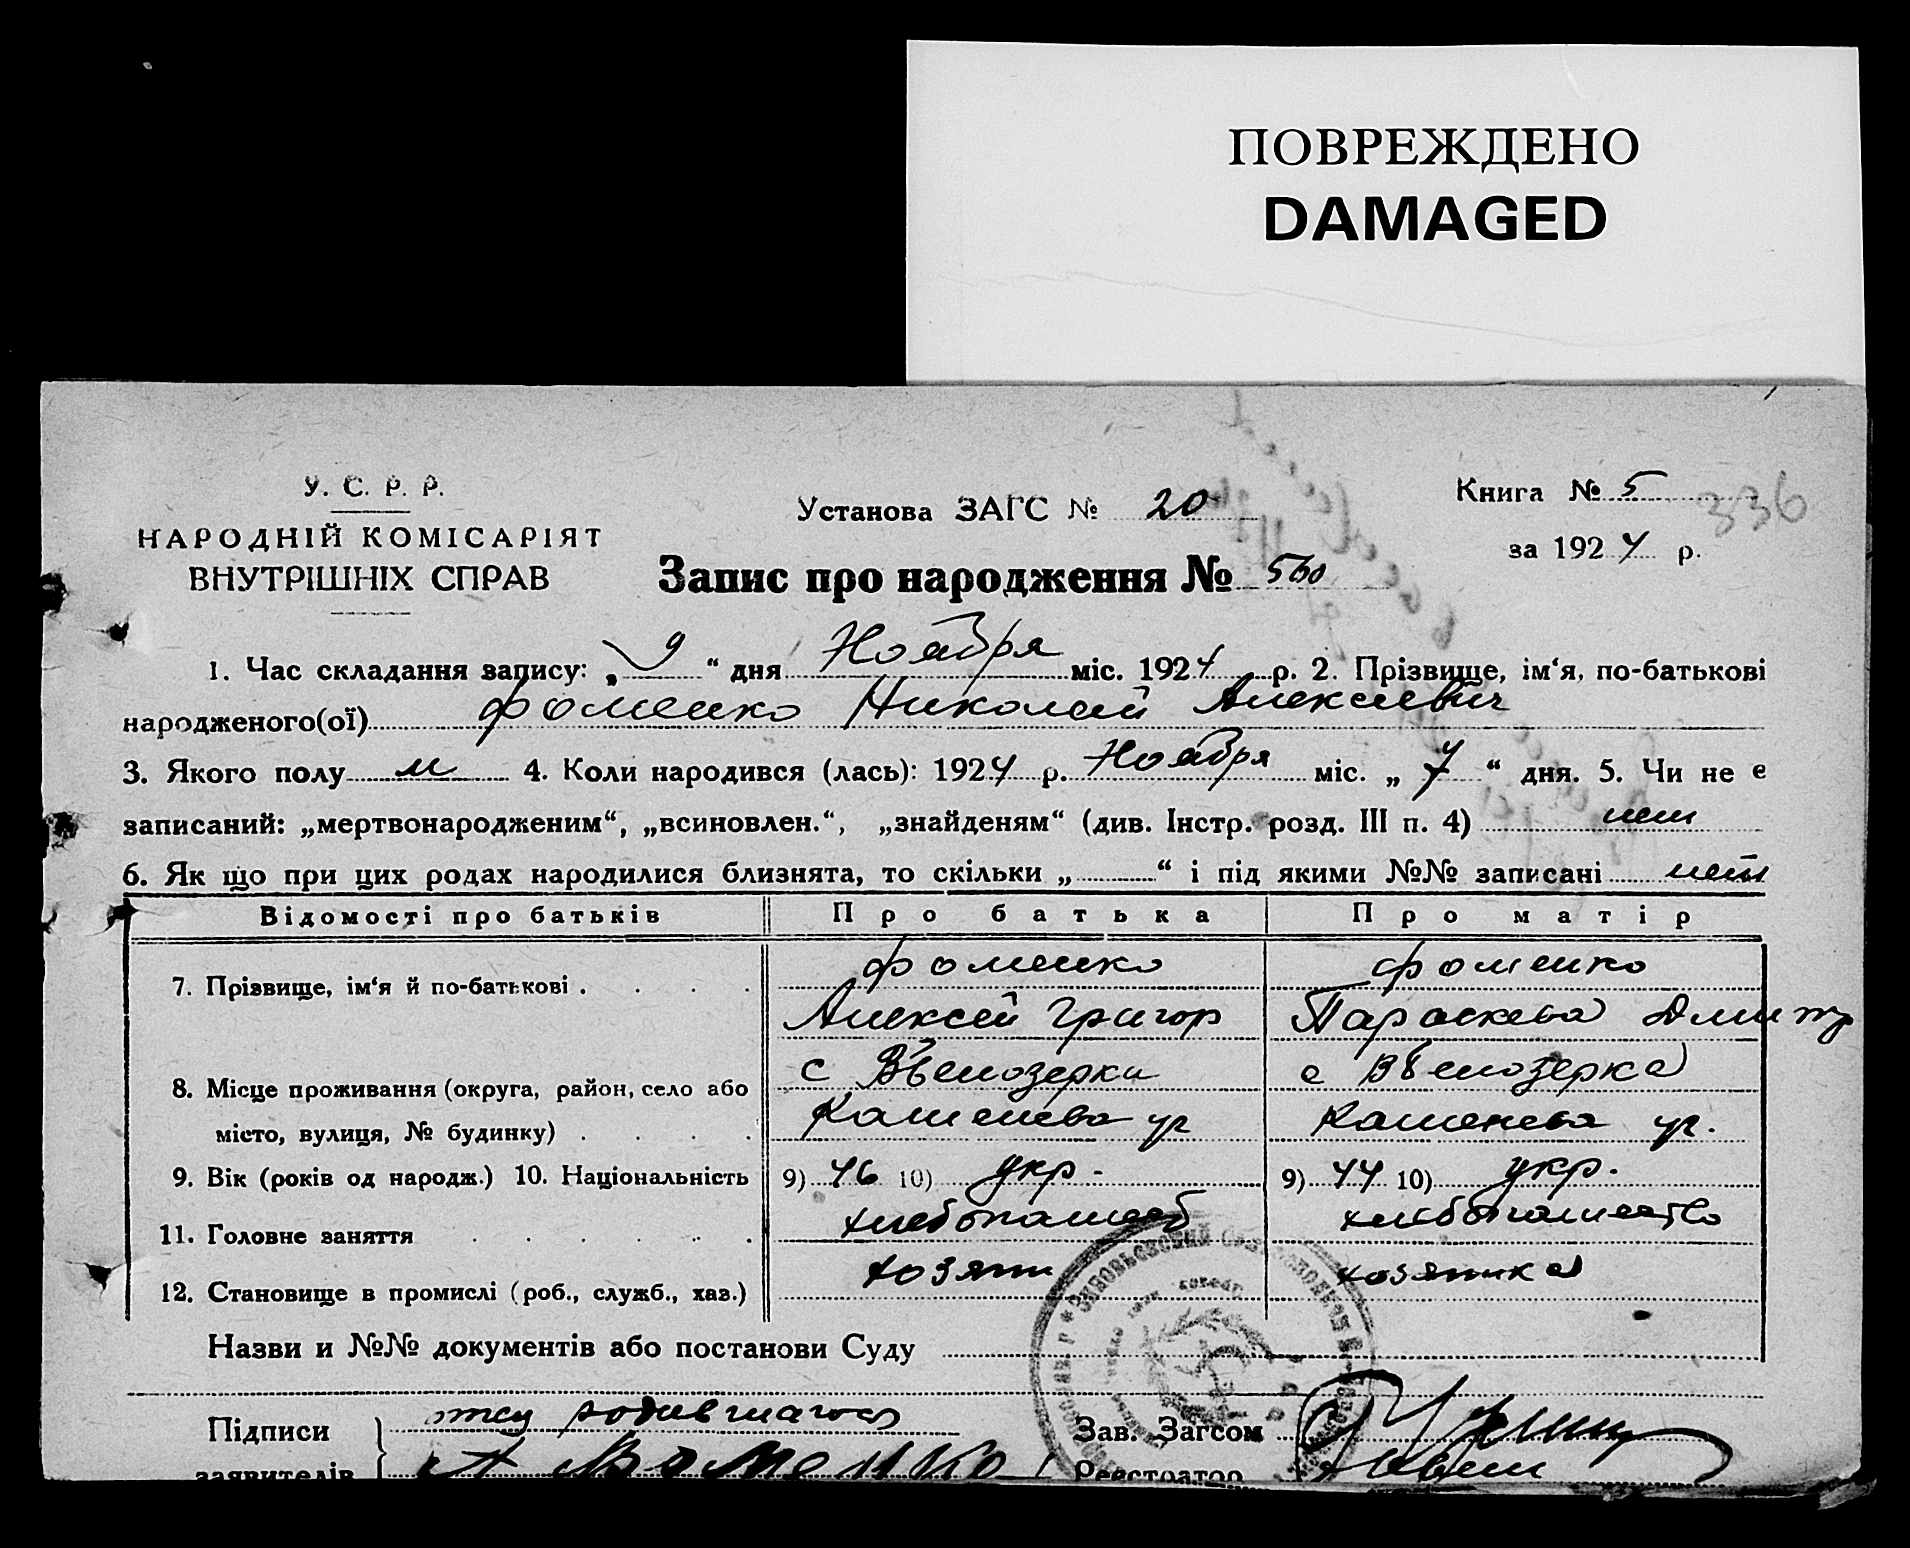 ПОВРЕЖДЕНО
DAMAGED
У. С. Р. Р.
НАРОДНІЙ КОМІСАРІЯТ
ВНУТРІШНІХ СПРАВ
Установа ЗАГС № 20
Книга № 5
336
за 1924 р.
Запис про народження № 560
1. Час складання запису: „ 9 “ дня Ноября міс. 1924 р. 2. Прізвище, ім‘я, по-батькові
народженого(ої) Фоменко Николай Алексеевич
3. Якого полу м 4. Коли народився (лась): 1924 р. Ноября міс. „ 7 “ дня. 5. Чи не є
записаний: „мертвонародженим“, „всиновлен.“, „знайденям“ (див. Інстр. розд. III п. 4) нет
6. Як що при цих родах народилися близнята, то скільки „ “ і під якими №№ записані нет
Відомості про батьків Про батька Про матір
7. Прізвище, ім‘я й по-батькові . Фоменко Фоменко
Алексей Григор Параскева Дмитр
8. Місце проживання (округа, район, село або с с
місто, вулиця, № будинку) Каменева уг Каменева уг.
9. Вік (років од народж.) 10. Національність 9) 46 10) укр. 9) 44 10) укр.
11. Головне заняття хлебопашество
12. Становище в промислі (роб., служб., хаз.) хозяин хозяйка
Назви и №№ документів або постанови Суду
Підписи отец родившагося Зав. Загсом
заявителів А Фоменко Реєстратор